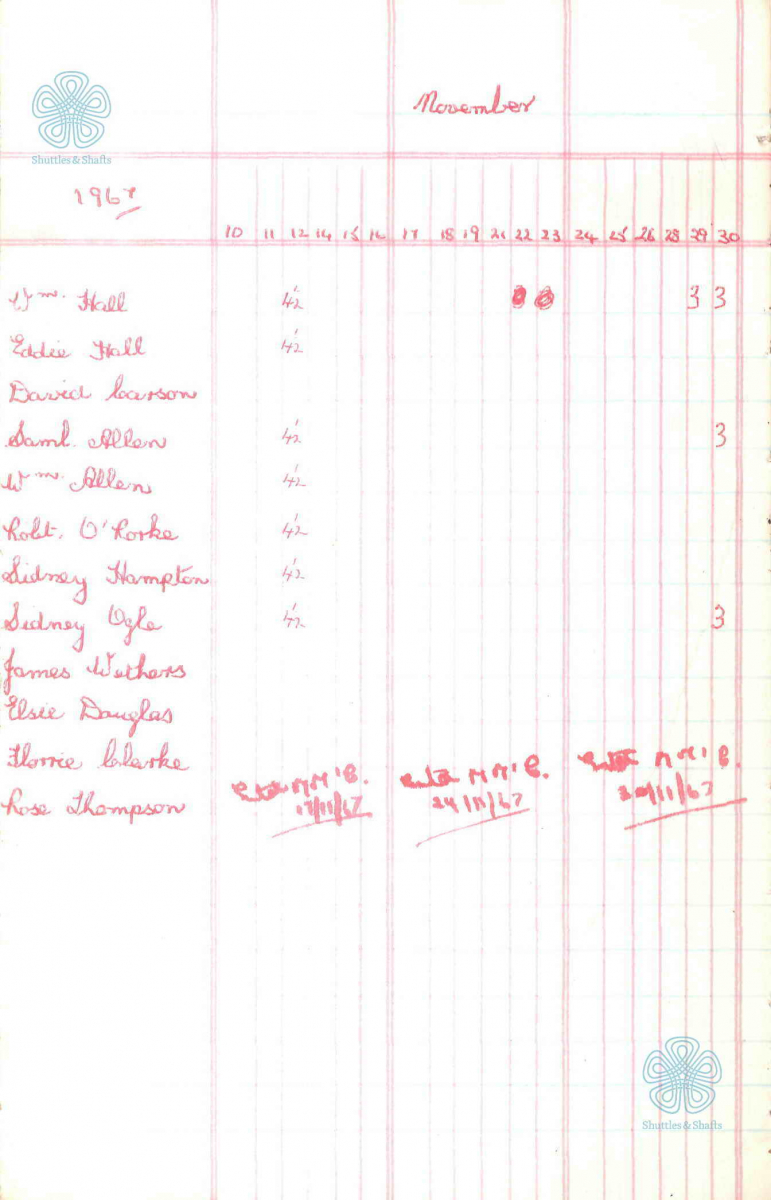 November
Shuttles & Shafts
1967
10 11 12 14 15 16 17 18 19 21 22 23 24 25 26 28 29 30
Wm. Hall 4½ 3 3
Eddie Hall 4½
David Carson
Saml. Allen 4½ 3
Wm. Allen 4½
Robt. O'Rorke 4½
Sidney Hampton 4½
Sidney Ogle 4½ 3
James Withers
Elsie Douglas
Florrie Clarke
MM'C. MM'C. MM'C.
Rose Thompson 17/11/67 24/11/67 30/11/67
Shuttles & Shafts